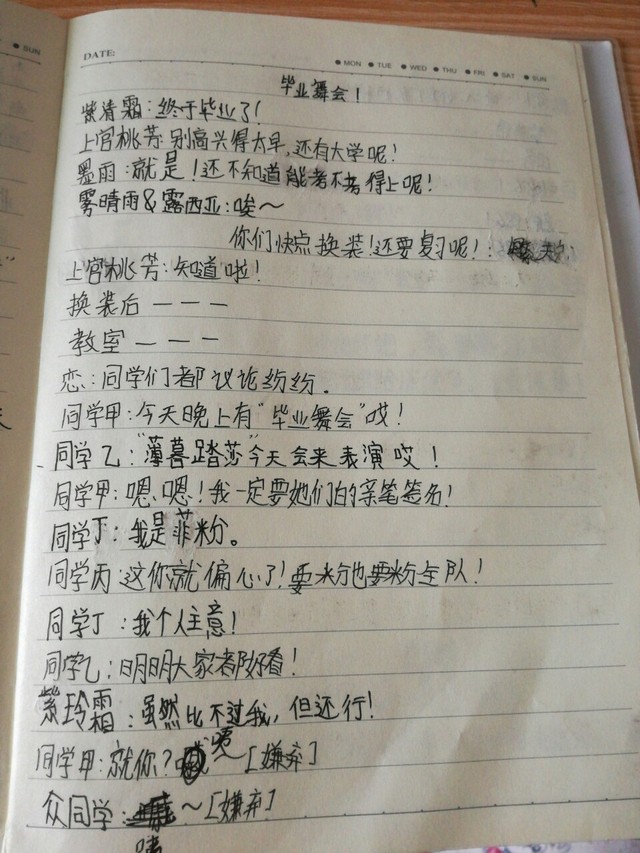 SUN
DATE:
MON TUE WED THU FRI SAT SUN
毕业舞会！
紫清霜：终于毕业了！
上官桃芳：别高兴得太早，还有大学呢！
墨雨：就是！还不知道能考不考得上呢！
雾晴雨&露西亚：唉～
你们快点换装！还要复习呢！：
上官桃芳：知道啦！
换装后 － － －
教室 － － －
恋：同学们都议论纷纷．
同学甲：今天晚上有“毕业舞会”哎！
同学乙：“薄暮踏莎”今天会来表演哎！
同学甲：嗯、嗯！我一定要她们的亲笔签名！
同学丁：我是菲粉。
同学丙：这你就偏心了！要粉也要粉全队！
同学丁：我个人主意！
同学乙：明明大家都好看！
紫玲霜：虽然比不过我，但还行！
同学甲：就你？咦～［嫌弃］
众同学：～［嫌弃］